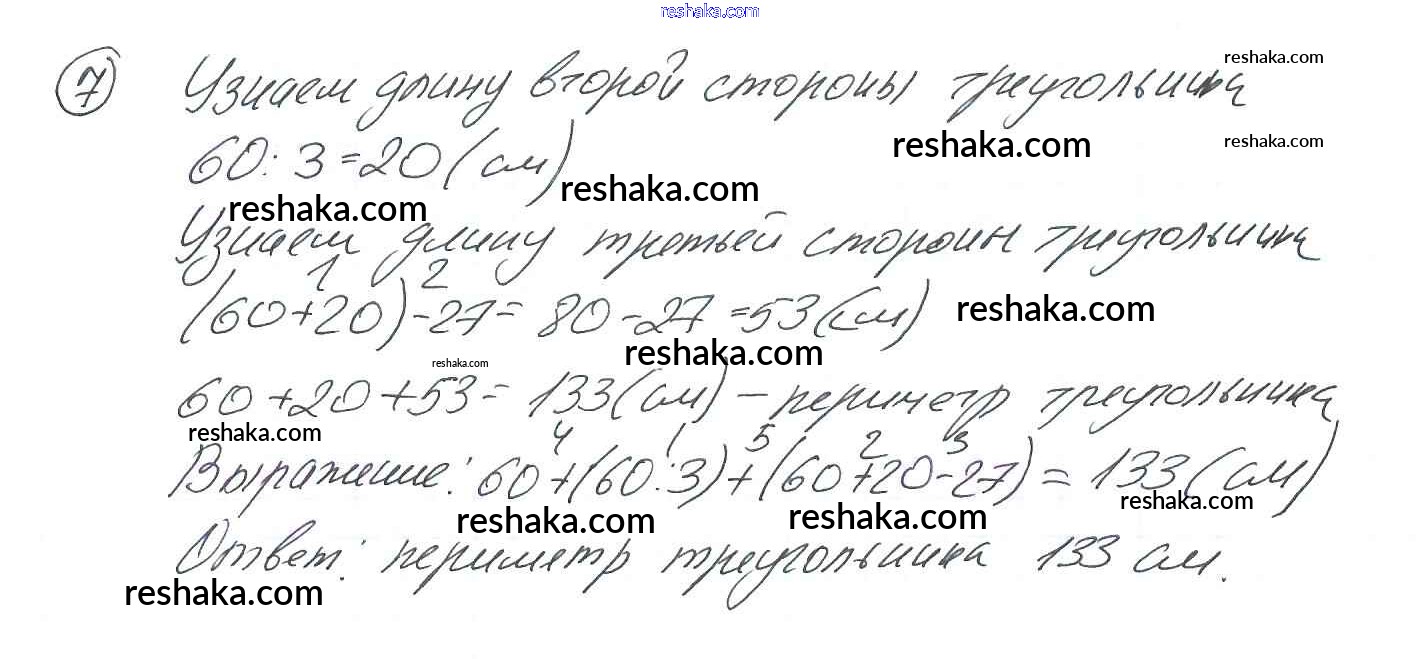 reshaka.com
7 Узнаем длину второй стороны треугольника
reshaka.com
60:3=20(см)
reshaka.com
reshaka.com
reshaka.com
reshaka.com
Узнаем длину третьей стороны треугольника
1 2
(60+20)-27= 80-27=53(см)
reshaka.com
reshaka.com
reshaka.com
60+20+53= 133(см) – периметр треугольника
reshaka.com
4 1 5 2 3
Выражение: 60+(60:3)+(60+20-27)= 133(см)
reshaka.com
reshaka.com
reshaka.com
Ответ: периметр треугольника 133 см.
reshaka.com